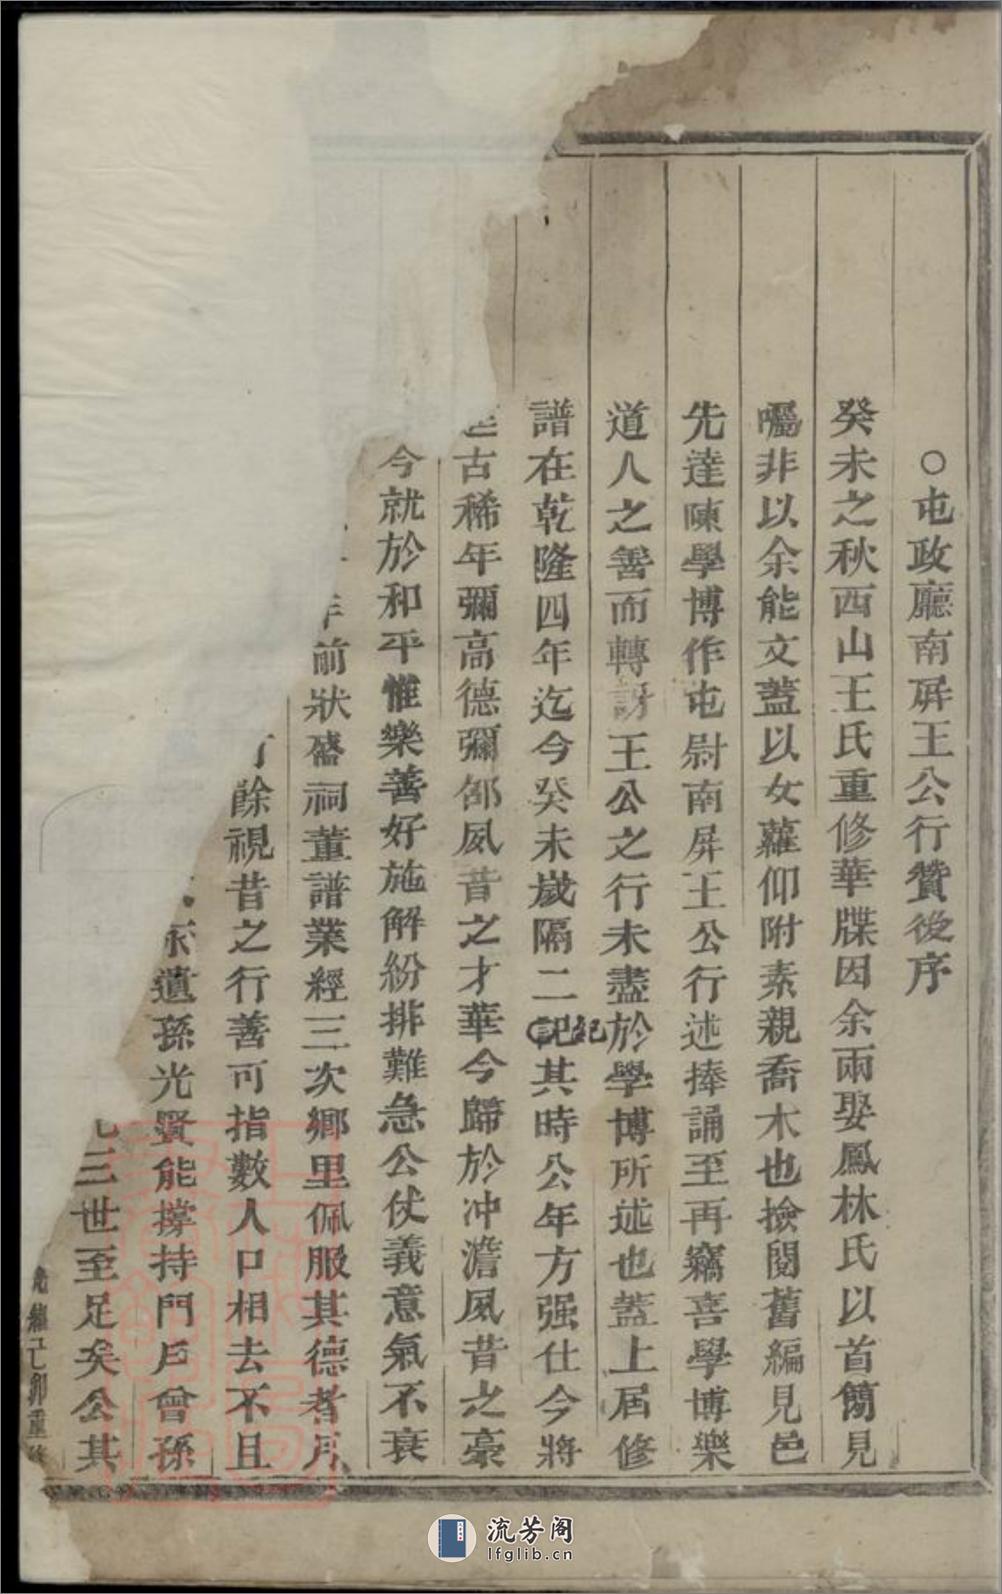 ○屯政廳南屏王公行贊後序
癸未之秋西山王氏重修華牒因余兩娶鳳林氏以首簡見
囑非以余能文蓋以女蘿仰附素親喬木也撿閱舊編見邑
先達陳學博作屯尉南屏王公行述捧誦至再竊喜學博樂
道人之善而轉訝王公之行未盡於學博所述也蓋上届修
譜在乾隆四年迄今癸未歲隔二記其時公年方强仕今將
紀
古稀年彌高德彌邵夙昔之才華今歸於冲澹夙昔之豪
今就於和平惟樂善好施解紛排難急公仗義意氣不衰
年前狀盛祠董譜業經三次鄉里佩服其德者月
餘視昔之行善可指數人口相去不且
遺孫光賢能撐持門戶曾孫
三世至足矣公其
光緒己卯重修
流芳阁
lfglib.cn